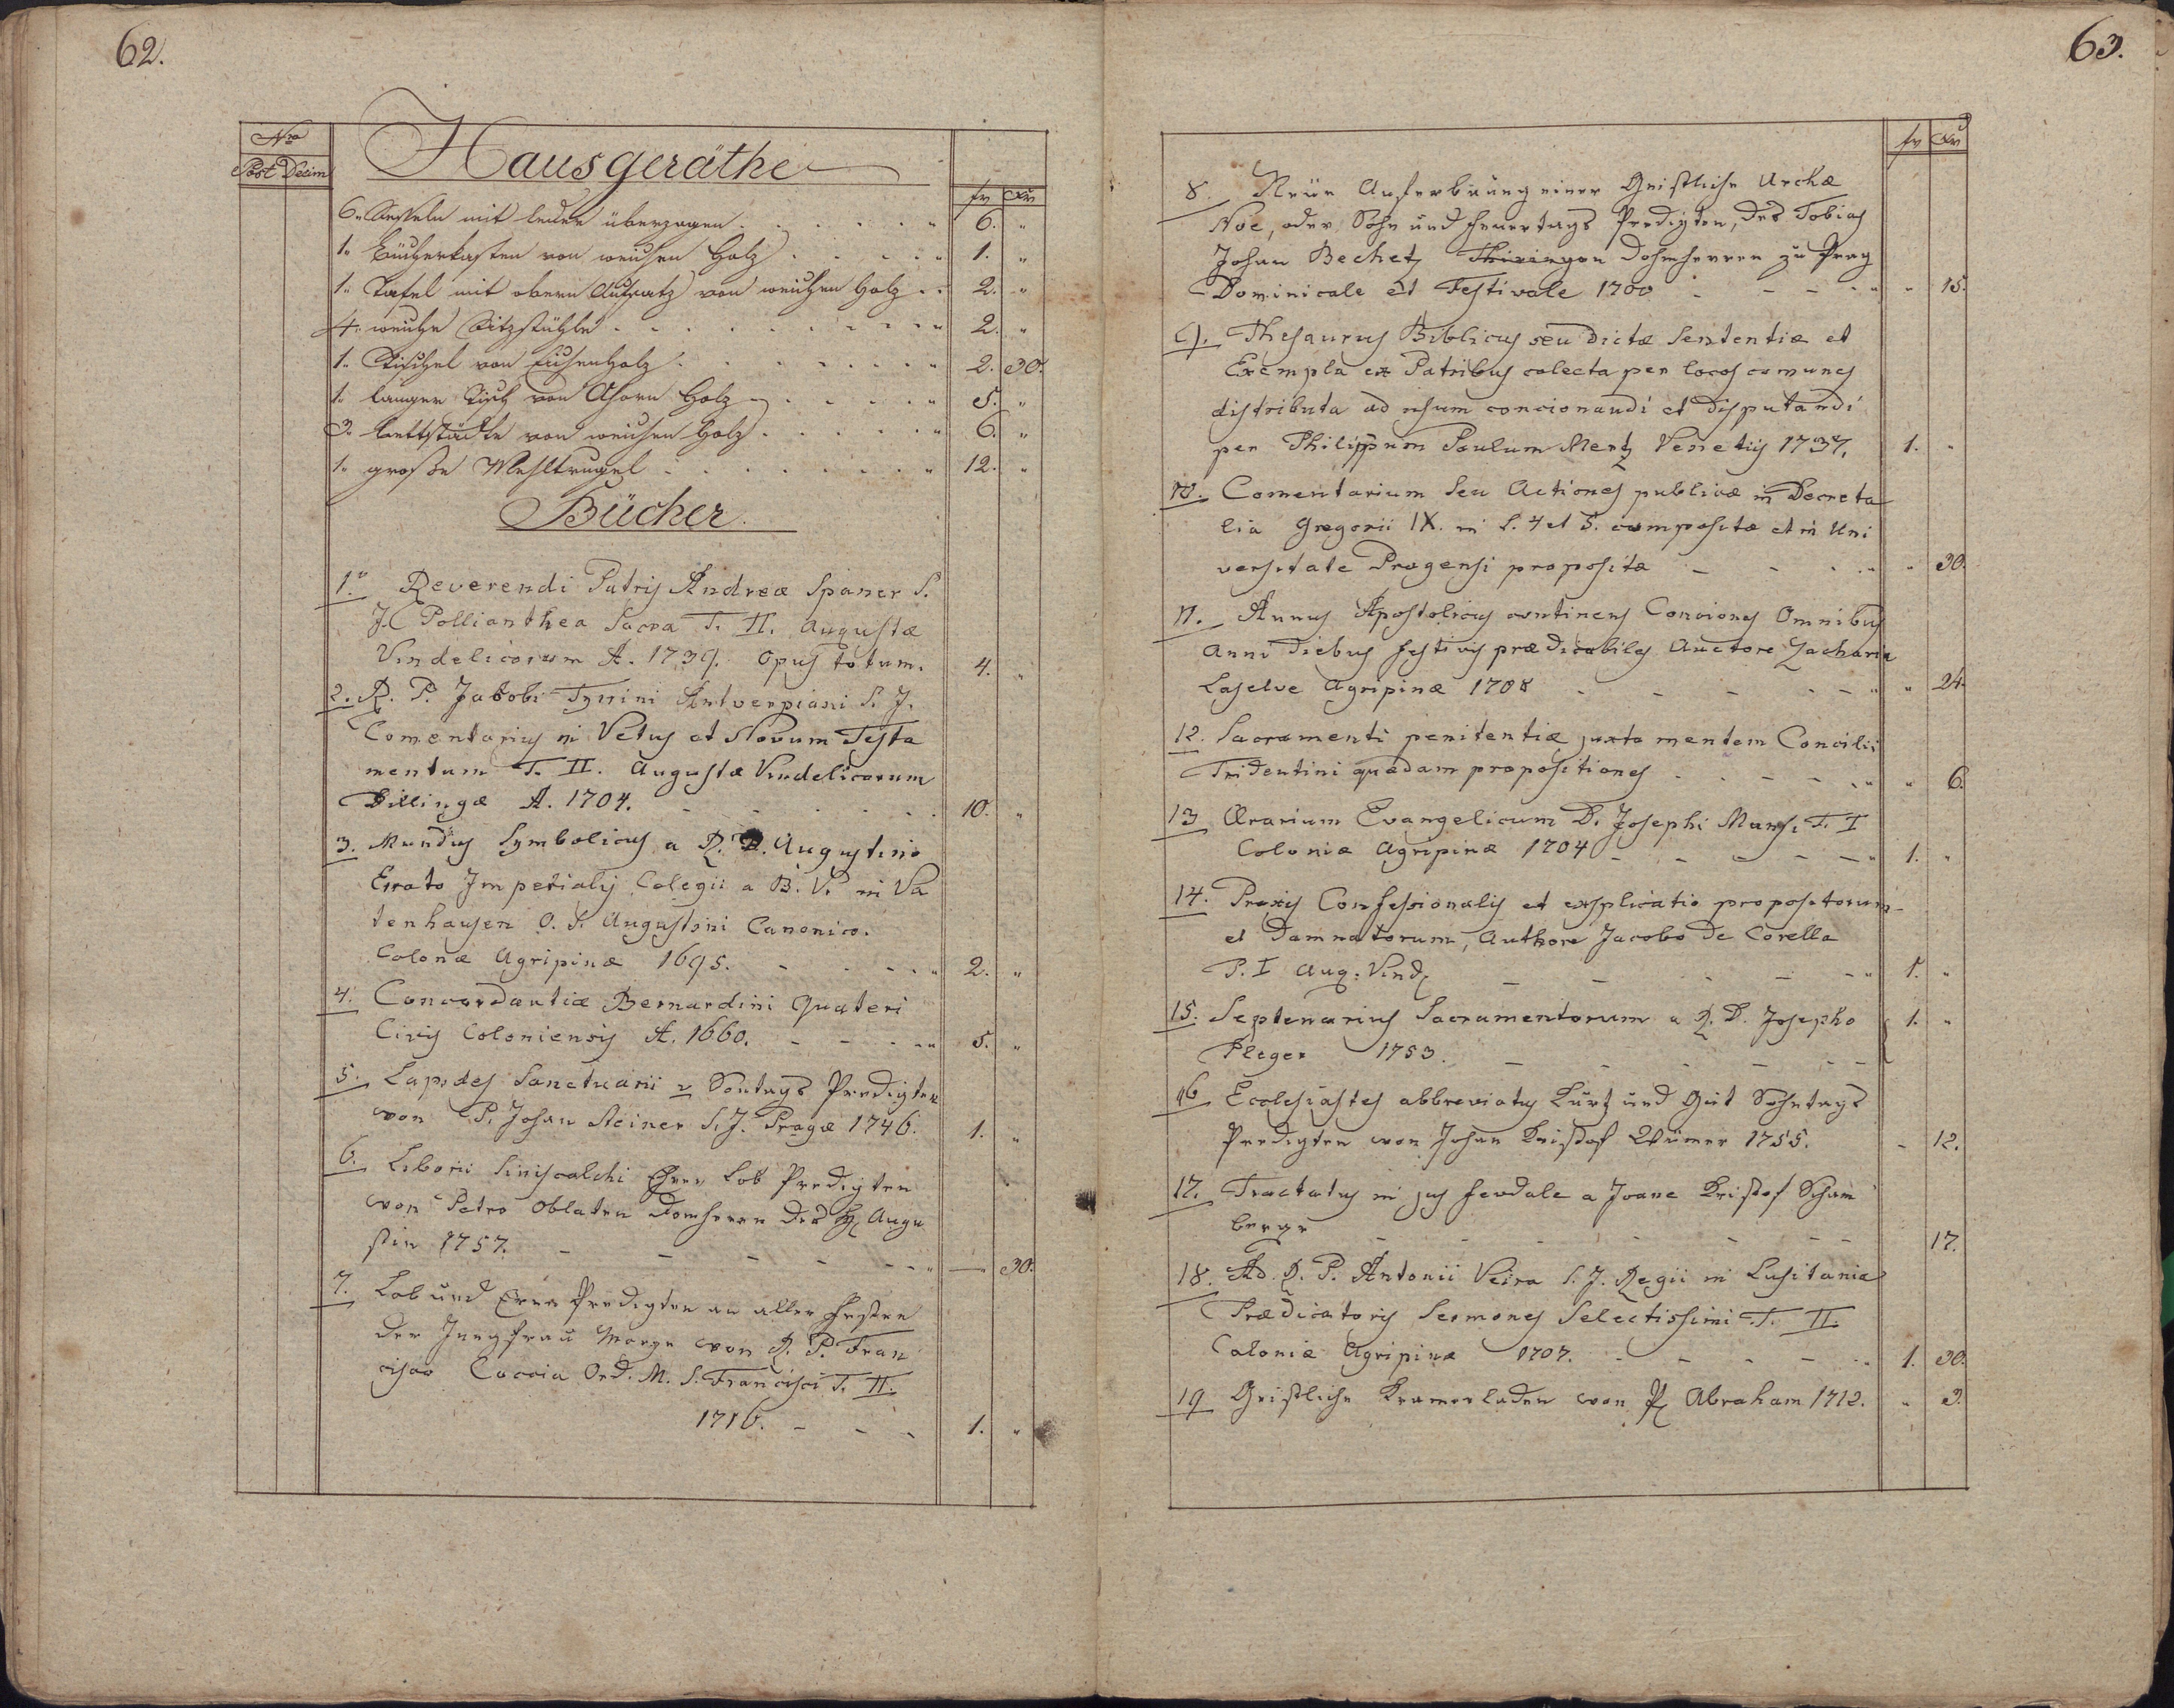 62.
Nro
Post Decim
Hausgeräthe
fr xr
6. Sesseln mit leder überzogen . . . . . " 6. "
1. Bücherkasten von weichen Holz . . . . " 1. "
1. Tafel mit obern Aufsatz von weichen Holz . . 2. "
4. weiche Sitzstühle . . . . . . . . " 2. "
1. Tischel von Eichenholz . . . . . . " 2. 30.
1. langer Tisch von Ahorn Holz . . . . " 5. "
3. Bettstädte von weichen Holz . . . . . " 6. "
1. große Mehltrugel . . . . . . . " 12. "
Bücher.
1. Reverendi Patris Andreæ Spaner S.
J. Pollianthea Sacra T. II. Augustæ
Vindelicorum A. 1739. Opus totum. 4. "
2. R. P. Jakobi Tyrini Antverpiani S. J.
Comentarius in Vetus et Novum Testa
mentum T. II. Augustæ Vindelicorum
Dillingæ A. 1704. - - - . . . 10. "
3. Mundus Symbolicus a R. D. Augustino
Erato Imperialis Colegii a B. V. in Va
tenhausen O. S. Augustini Canonico.
Colonæ Agripinæ 1695. - - - . . " 2. "
4. Concordantiæ Bernardini Quateri
Civis Coloniensis A. 1660. - - - . . " 5. "
5. Lapides Sanctuarii v Sontags Predigten
von P. Johan Steiner S. J. Pragæ 1746. 1. "
6. Liborii Siniscalchi Ehren Lob Predigten
von Petro Oblaten Domherrn des H. Augu
stin 1757. - - - - - - . " — 30.
7. Lob und Eren Predigten an allen Festen
der Jungfrau Marye von R. P. Fran
cisco Caccia Ord. M. S. Francisci T. II.
1716. - - - 1. "
63.
fr xr
8. Neüe Auferbauung einer Geistliche Archæ
Noe, oder Sohn und Feuertags Predigten, des Tobias
Johan Bechetz Thüringen Dohmherren zu Prag
Dominicale et Festivale 1700 - - - - . " " 15.
9. Thesaurus Biblicus seu dictæ Sententiæ et
Exempla ex Patribus colecta per locos comunes
distributa ad usum concionandi et disputandi
per Philippum Paulum Mertz Venetiis 1737. 1. "
10. Comentarium seu Actiones publicæ in Decreta
lia Gregorii IX. in l. 4 et 5. compositæ et in Uni
versitate Pragensi propositæ - - - . . " " 30.
11. Annus Apostolicus continens Conciones Omnibus
Anni diebus festivis prædicabiles Auctore Zacharia
Laselve Agripinæ 1708 - - - - - " " 24.
12. Sacramenti penitentiæ juxta mentem Concilii
Tridentini quædam propositiones - - - - . " " 6.
13 Ærarium Evangelicum D. Josephi Mansi T. I
Coloniæ Agripinæ 1704 - - - - - " 1. "
14. Praxis Confessionalis et explicatio propositorum
et Damnatorum, Authore Jacobo de Corella
P. I Aug: Vind. - - - - - " 1. "
15. Septenarius Sacramentorum a R. D. Josepho 1. "
Pleger 1753. - - - - - -
16 Ecclesiastes abbreviatus Kurtz und Gut Sohntags
Predigten von Johan Kristof 1755. - 12.
17. Tractatus in jus feudale a Joane Kristof Scham
berge - - - - - - - 17.
18. Ad. R. P. Antonii Veira S. J. Regii in Lusitania
Prædicatoris Sermones Selectissimi T. II.
Coloniæ Agripinæ 1707. - - - - . " 1. 30.
19 Geistliche Kramerladen von P. Abraham 1712. " 3.